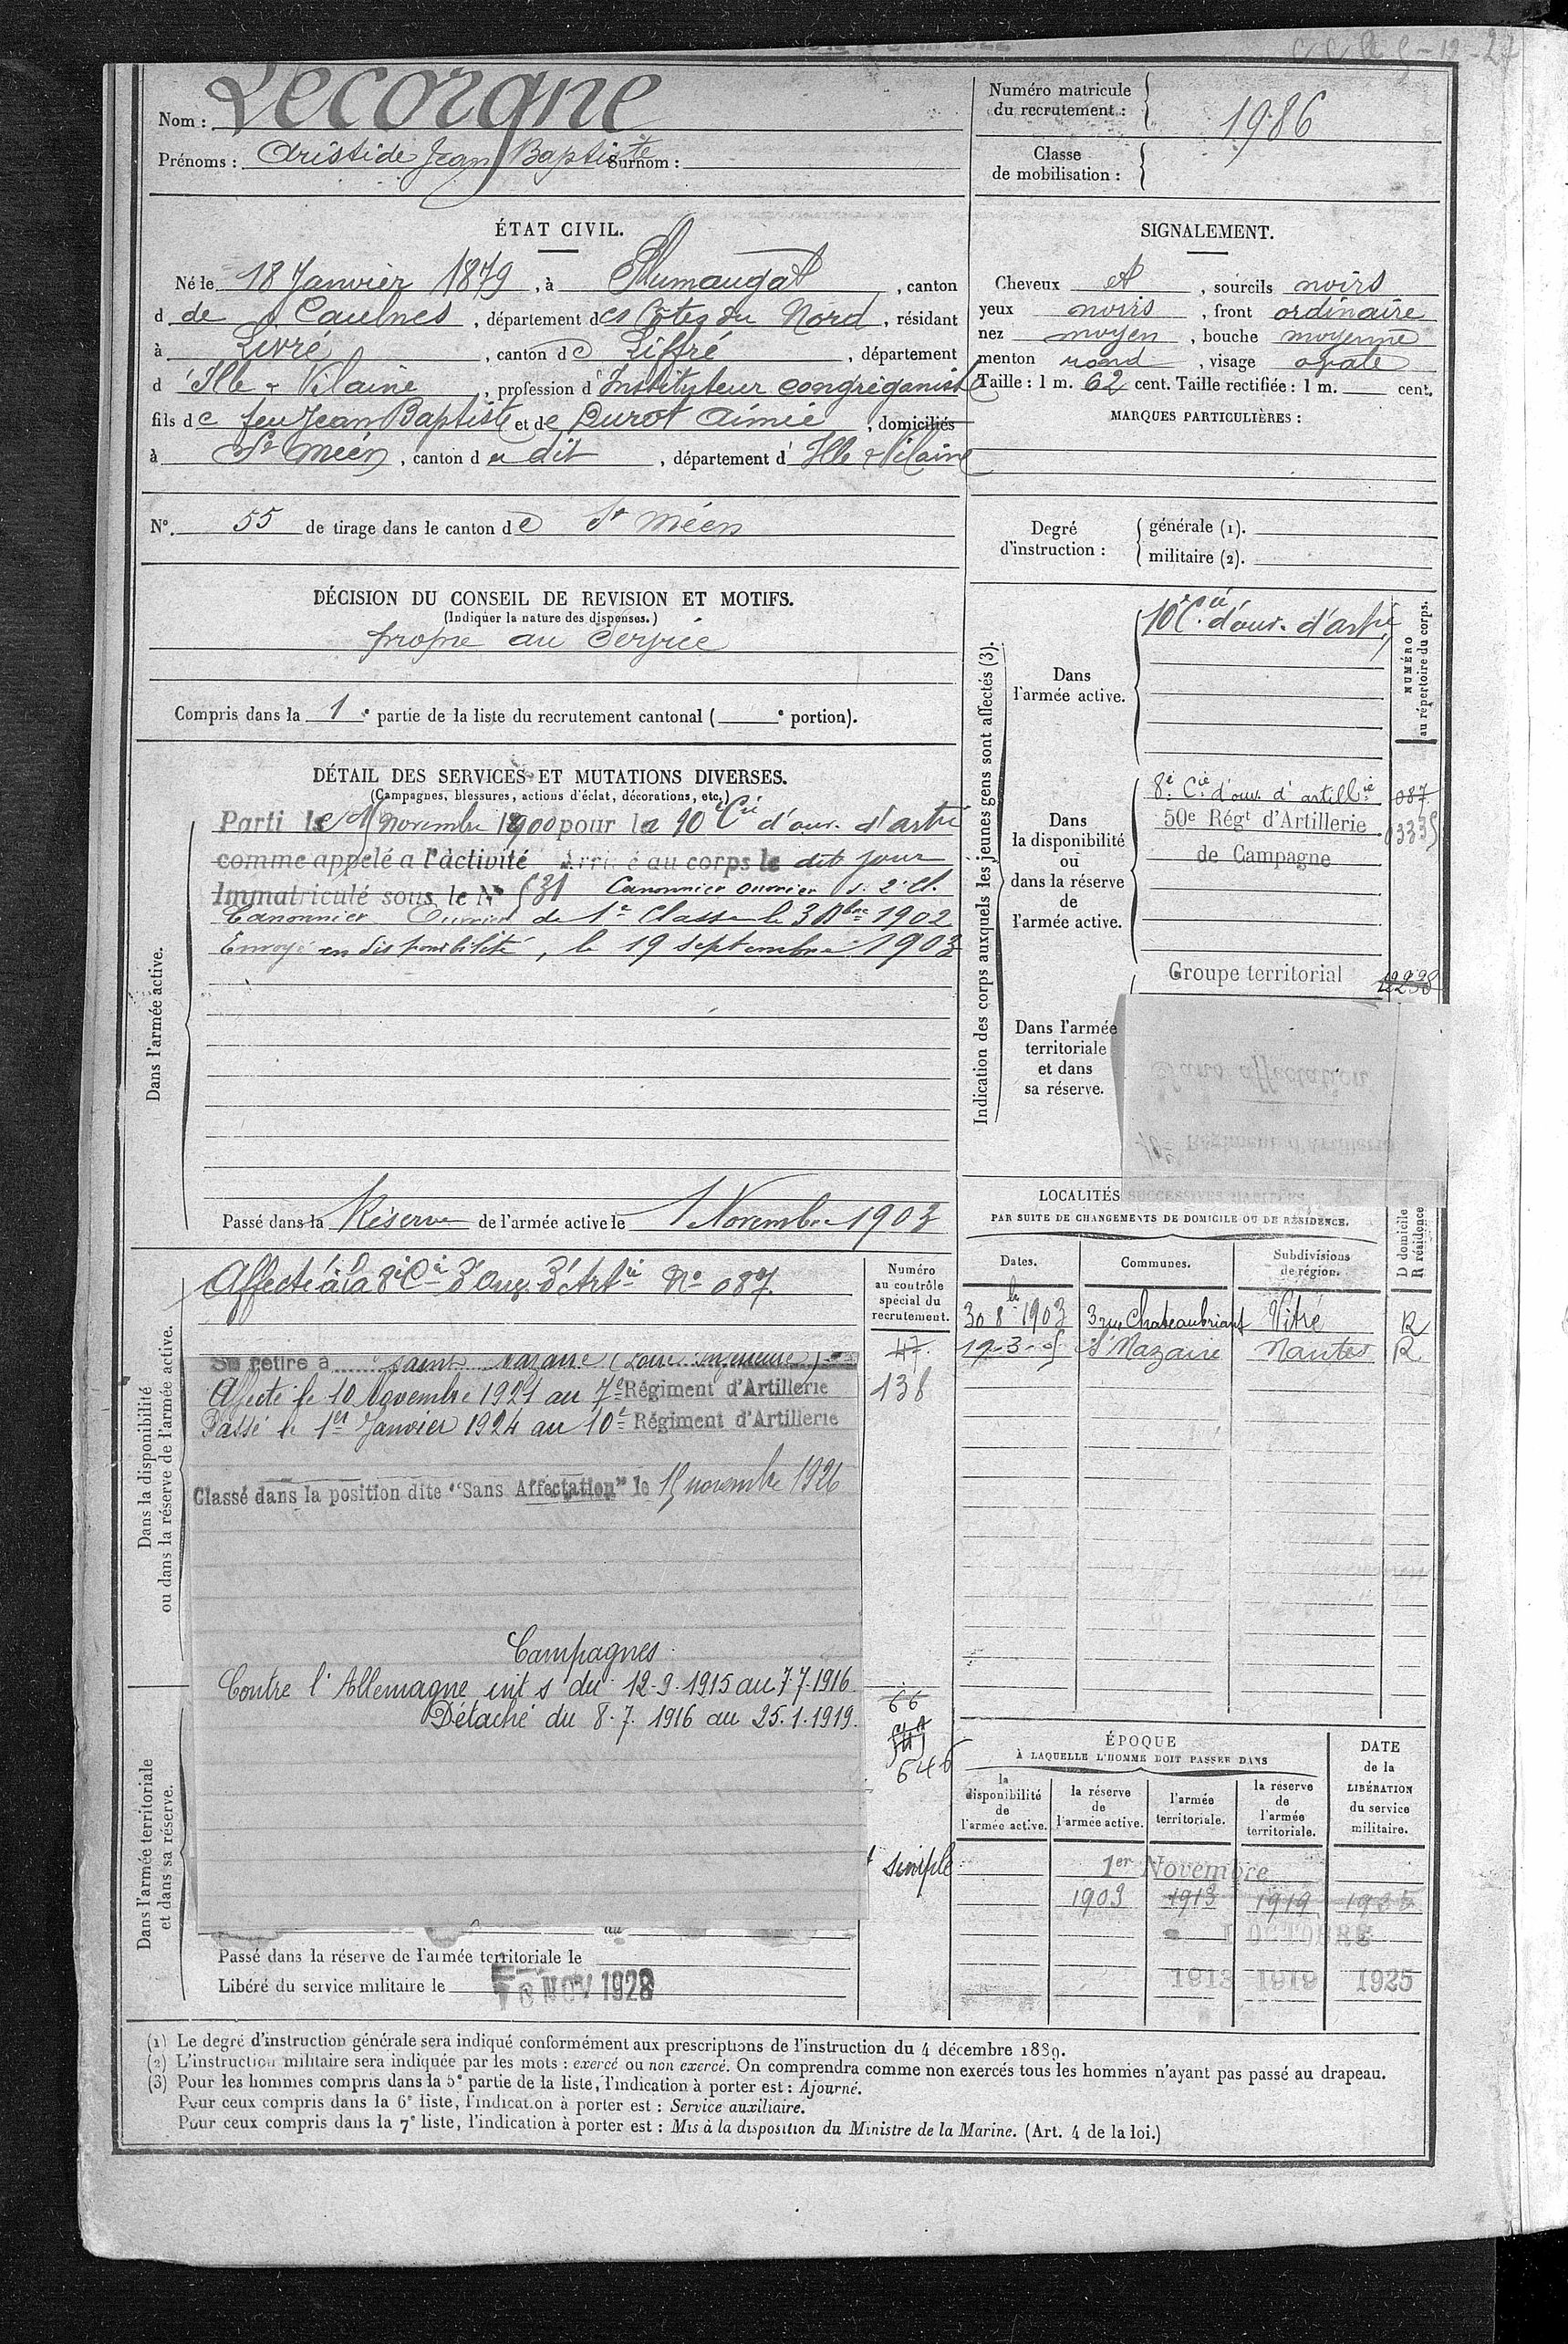 Nom : Lecorgne
Prénoms : Aristide Jean Baptiste Surnom :
Numéro matricule du recrutement : 1986
Classe de mobilisation :
ÉTAT CIVIL.
Né le 18 Janvier 1879, à Plumaugat, canton
d de Caulnes, département des Côtes du Nord, résidant
à Livré, canton de Liffré, département
d'Ille & Vilaine, profession d'Instituteur congréganiste
fils de feu Jean Baptiste et de Durot Aimée, domiciliés
à St Méen, canton du dit, département d'Ille & Vilaine
N°. 55 de tirage dans le canton de St Méen
SIGNALEMENT.
Cheveux et, sourcils noirs
yeux noirs, front ordinaire
nez moyen, bouche moyenne
menton rond, visage ovale
Taille : 1 m. 62 cent. Taille rectifiée : 1 m. cent.
MARQUES PARTICULIÈRES :
Degré d'instruction :
générale (1).
militaire (2).
DÉCISION DU CONSEIL DE REVISION ET MOTIFS.
(Indiquer la nature des dispenses.)
propre au Service
Compris dans la 1e partie de la liste du recrutement cantonal ( e portion).
DÉTAIL DES SERVICES ET MUTATIONS DIVERSES.
(Campagnes, blessures, actions d'éclat, décorations, etc.)
Dans l'armée active.
Parti le novembre 1900 pour la 10e Cie d'ouv. d'artie
comme appelé a l'activité Arrivé au corps le dit jour
Immatriculé sous le N° 531 Canonnier ouvrier d. 2e Cl.
Canonnier Ouvrier de 1e Classe le 3 1902
Envoyé en disponibilité, le 19 septembre 1903
Passé dans la Réserve de l'armée active le 1 Novembre 1903
Indication des corps auxquels les jeunes gens sont affectés (3).
NUMÉRO au répertoire du corps.
Dans l'armée active.
10e Cie d'ouv. d'artie
Dans la disponibilité ou dans la réserve de l'armée active.
8e Cie d'ouv. d'artillie 087
50e Régt d'Artillerie 03335
de Campagne
Groupe territorial
Dans l'armée territoriale et dans sa réserve.
Sans affectation
10e Régiment d'Artillerie
LOCALITÉS SUCCESSIVES HABITÉES
PAR SUITE DE CHANGEMENTS DE DOMICILE OU DE RÉSIDENCE.
Dates. Communes. Subdivisions de région. D domicile R résidence
30 8bre 1903 3 rue Chateaubriant Vitré R
19-3-05 St Nazaire Nantes R
Dans la disponibilité ou dans la réserve de l'armée active.
Numéro au contrôle spécial du recrutement.
Affecté à la 8e Cie d'Ouv. d'Artie N° 087.
Se retire à Saint Nazaire (Loire Inférieure)
47
Affecté le 10 Novembre 1921 au 7e Régiment d'Artillerie
138
Passé le 1er Janvier 1924 au 10e Régiment d'Artillerie
Classé dans la position dite "Sans Affectation" le 15 novembre 1926
Campagnes
Contre l'Allemagne int s du 12-9-1915 au 7.7.1916.
Détaché du 8.7.1916 au 25.1.1919.
66
646
simple
Dans l'armée territoriale et dans sa réserve.
au
Passé dans la réserve de l'armée territoriale le
Libéré du service militaire le NOV 1928
ÉPOQUE
À LAQUELLE L'HOMME DOIT PASSER DANS
la disponibilité de l'armée active. la réserve de l'armée active. l'armée territoriale. la réserve de l'armée territoriale.
DATE de la LIBÉRATION du service militaire.
1er Novembre
1903 1913 1919
1 OCTOBRE
1913 1919 1925
(1) Le degré d'instruction générale sera indiqué conformément aux prescriptions de l'instruction du 4 décembre 1889.
(2) L'instruction militaire sera indiquée par les mots : exercé ou non exercé. On comprendra comme non exercés tous les hommes n'ayant pas passé au drapeau.
(3) Pour les hommes compris dans la 5e partie de la liste, l'indication à porter est : Ajourné.
Pour ceux compris dans la 6e liste, l'indication à porter est : Service auxiliaire.
Pour ceux compris dans la 7e liste, l'indication à porter est : Mis à la disposition du Ministre de la Marine. (Art. 4 de la loi.)